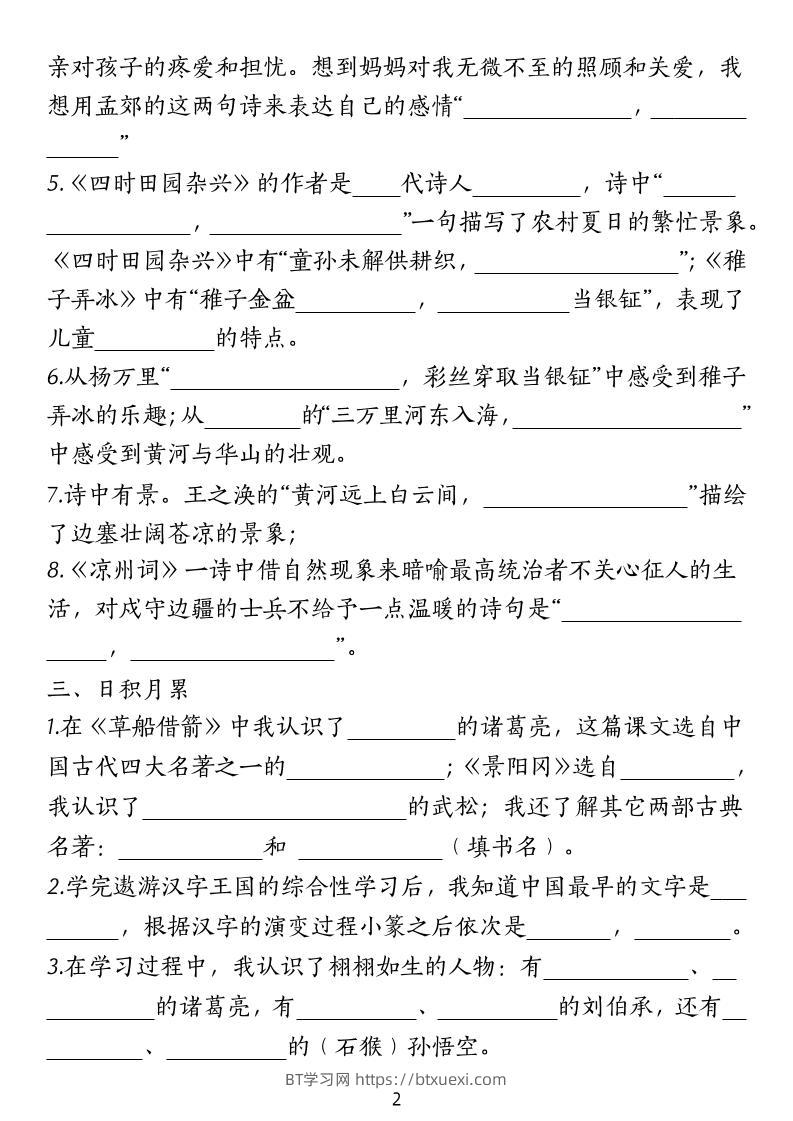 亲对孩子的疼爱和担忧。想到妈妈对我无微不至的照顾和关爱，我
想用孟郊的这两句诗来表达自己的感情“______________，________
______”
5.《四时田园杂兴》的作者是____代诗人_________，诗中“______
____________，________________”一句描写了农村夏日的繁忙景象。
《四时田园杂兴》中有“童孙未解供耕织，_________________”；《稚
子弄冰》中有“稚子金盆__________，___________当银钲”，表现了
儿童__________的特点。
6.从杨万里“___________________，彩丝穿取当银钲”中感受到稚子
弄冰的乐趣；从________的“三万里河东入海，___________________”
中感受到黄河与华山的壮观。
7.诗中有景。王之涣的“黄河远上白云间，_________________”描绘
了边塞壮阔苍凉的景象；
8.《凉州词》一诗中借自然现象来暗喻最高统治者不关心征人的生
活，对戍守边疆的士兵不给予一点温暖的诗句是“_______________
_____，_________________”。
三、日积月累
1.在《草船借箭》中我认识了_________的诸葛亮，这篇课文选自中
国古代四大名著之一的_____________；《景阳冈》选自_________，
我认识了______________________的武松；我还了解其它两部古典
名著：____________和 ____________（填书名）。
2.学完遨游汉字王国的综合性学习后，我知道中国最早的文字是___
______，根据汉字的演变过程小篆之后依次是_______，________。
3.在学习过程中，我认识了栩栩如生的人物：有____________、__
_________的诸葛亮，有__________、__________的刘伯承，还有__
________、__________的（石猴）孙悟空。
BT学习网 https://btxuexi.com
2